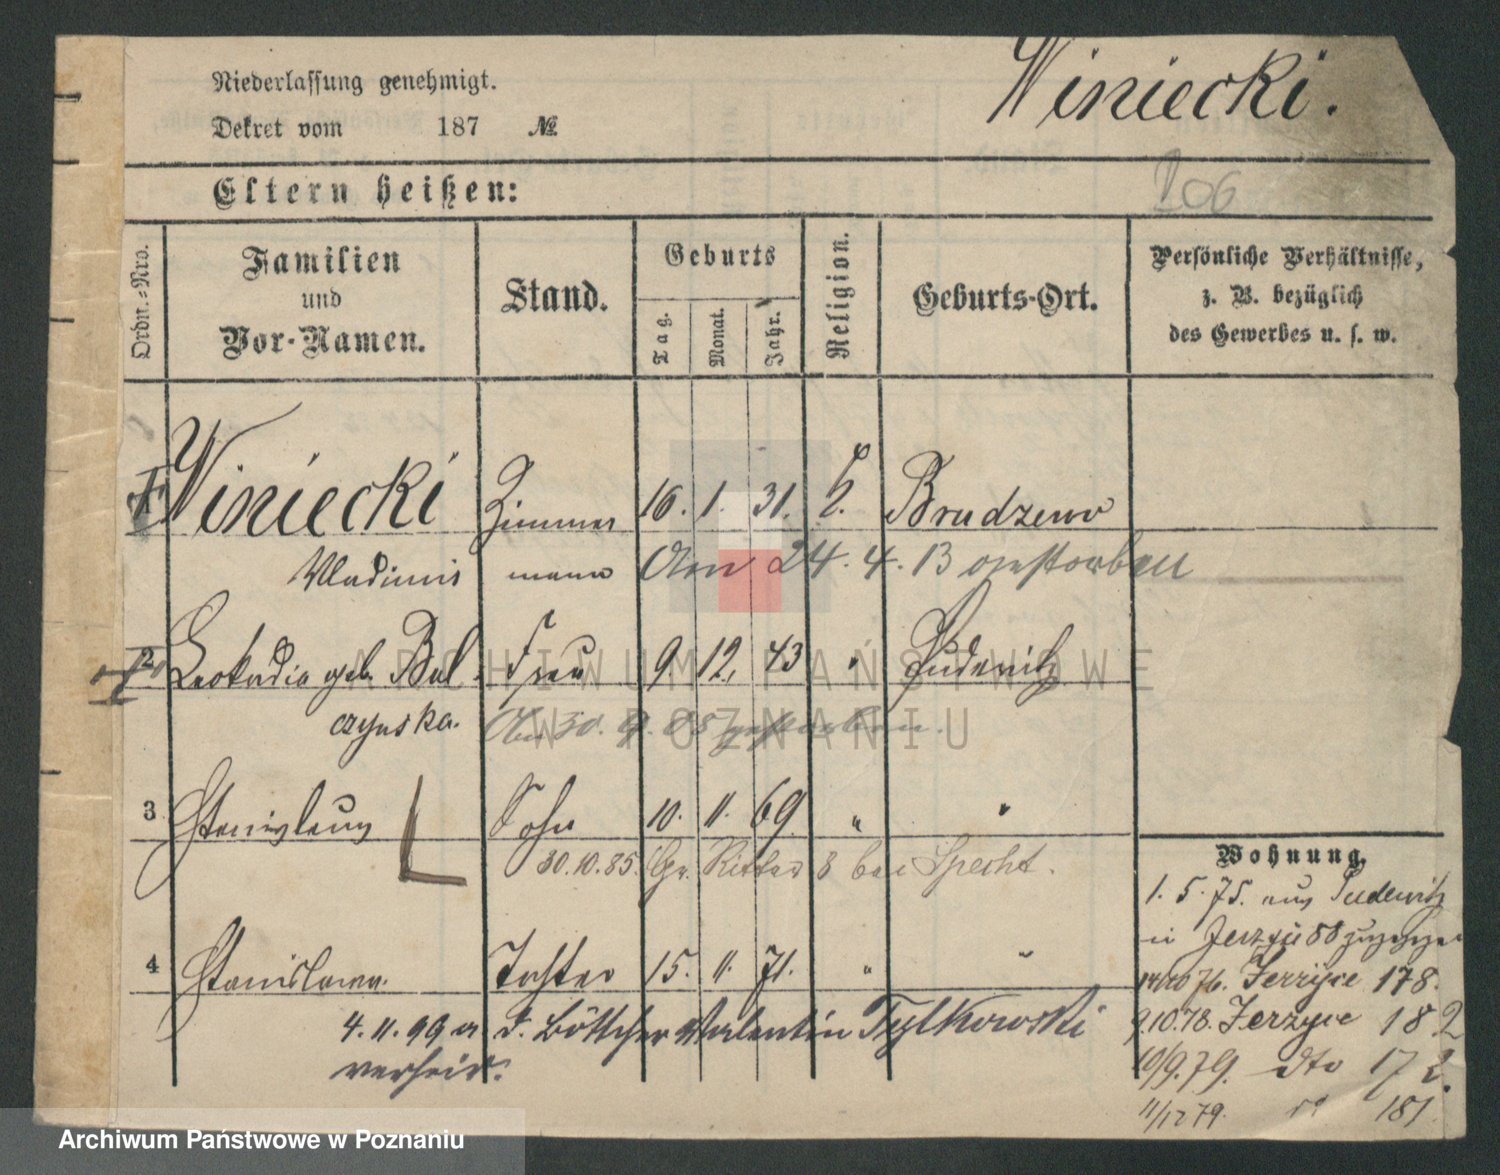 Winiecki.
Niederlassung genehmigt.
Dekret vom 187 №
Eltern heißen:
106
Ordn.=Nro.
Familien
und
Vor-Namen.
Stand.
Geburts
Tag.
Monat.
Jahr.
Religion.
Geburts-Ort.
Persönliche Verhältnisse,
z. B. bezüglich
des Gewerbes u. s. w.
Winiecki Zimmer 16. 1. 31. k. Brudzewo
Wladimir mann Am 24. 4. 13 verstorben
2 Leokadia geb. Bal Frau 9. 12. 43 " Pudewitz
czynska. Am 30. 9. 08 gestorben.
3 Stanislaus Sohn 10. 11. 69 " "
30.10.85. Gr. Ritter 8 bei Specht.
4 Stanislawa. Tochter 15. 11. 71. " "
4. 11. 99 a. d. Böttcher Valentin Tylkowski
verheir.
Wohnung.
1. 5. 75. aus Pudewitz
in Jerzyce 88 zugezogen
14/10 76. Jerzyce 178.
9.10.78. Jerzyce 182
10/9.79. dto 172.
11/12 79. do 181
ARCHIWUM PAŃSTWOWE
W POZNANIU
Archiwum Państwowe w Poznaniu